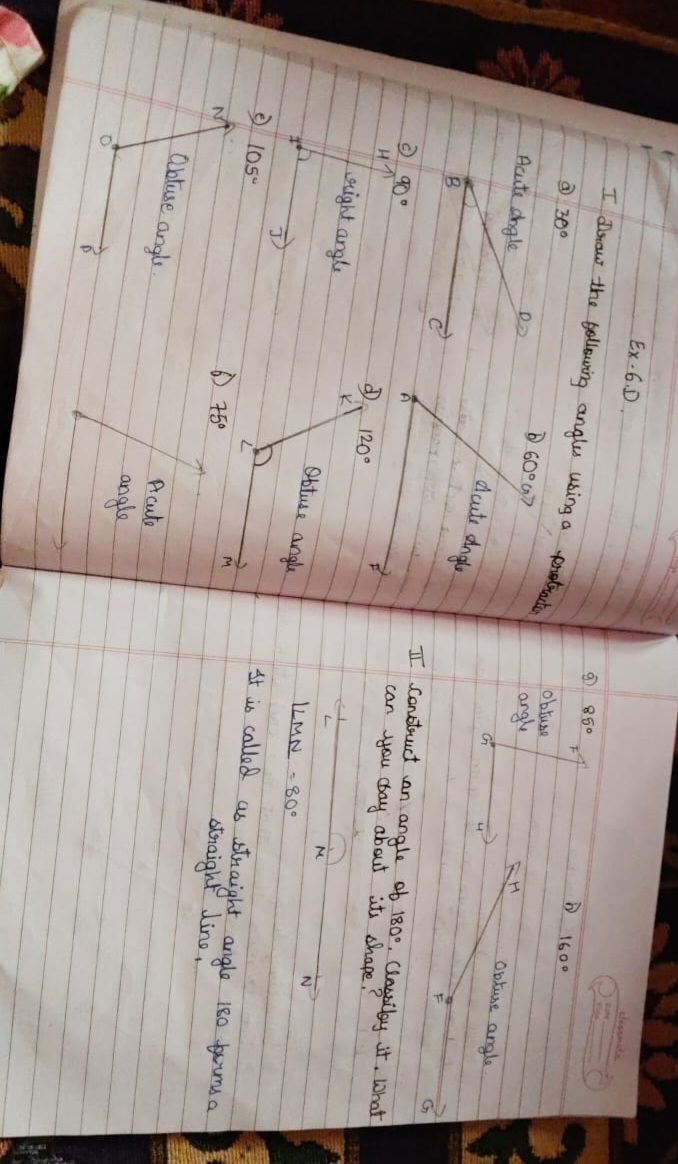 Ex-6.D.
I Draw the following angles using a protractor
a) 30°
b) 60°
Acute Angle
D
B
C
Acute Angle
G
A
F
c) 90°
d) 120°
H
right angle
I
J
K
Obtuse angle
L
M
e) 105°
f) 75°
N
Obtuse angle.
O
P
Acute
angle
classmate
g) 85°
h) 160°
Obtuse
angle
F
G
H
H
Obtuse angle.
F
G
II Construct an angle of 180°. Classify it. What
can you say about its shape?
L
M
N
LMN = 80°
It is called as straight angle 180 forms a
straight line.